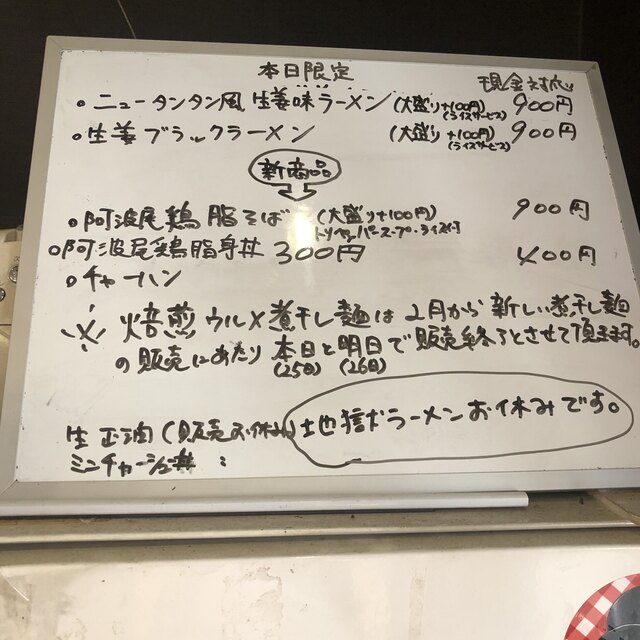 本日限定
現金対応
。ニュータンタン風 生姜味ラーメン (大盛り+100円) (ライスサービス) 900円
。生姜ブラックラーメン (大盛り+100円) (ライスサービス) 900円
新商品
。阿波尾鶏 脂そば (大盛り+100円) 900円
。阿波尾鶏脂身丼 300円 400円
。チャーハン
※ 焙煎ウルメ煮干し麺は2月から新しい煮干し麺
の販売にあたり本日と明日で販売終了とさせて頂きます。
(25日) (26日)
生 正油 (販売お休み) 地獄ラーメンお休みです。
ミニチャーシュー丼 :